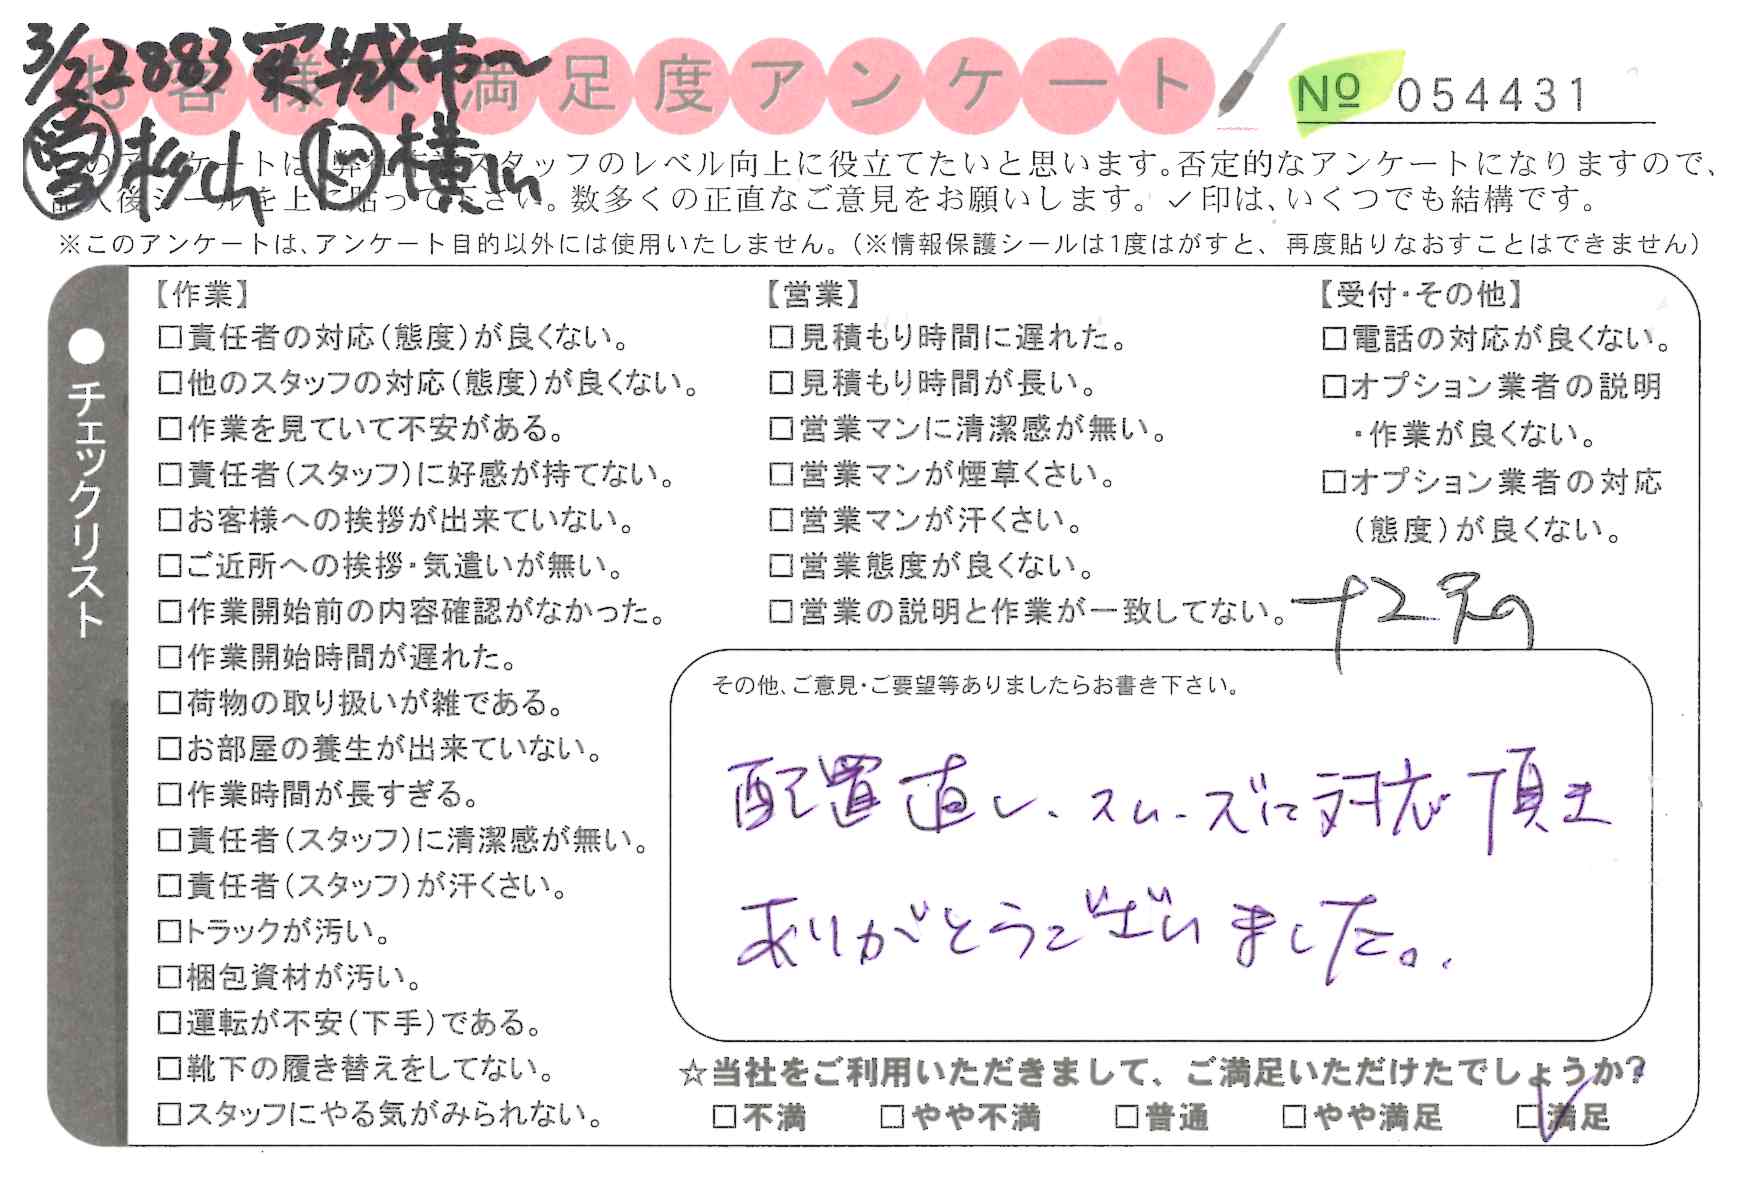 3/22 883 安城市～
お客様不満足度アンケート
№ 054431
営 杉山 ド 横山
このアンケートは、弊社作業スタッフのレベル向上に役立てたいと思います。否定的なアンケートになりますので、
記入後シールを上に貼って下さい。数多くの正直なご意見をお願いします。✓印は、いくつでも結構です。
※このアンケートは、アンケート目的以外には使用いたしません。(※情報保護シールは1度はがすと、再度貼りなおすことはできません)
●チェックリスト
【作業】
□責任者の対応(態度)が良くない。
□他のスタッフの対応(態度)が良くない。
□作業を見ていて不安がある。
□責任者(スタッフ)に好感が持てない。
□お客様への挨拶が出来ていない。
□ご近所への挨拶・気遣いが無い。
□作業開始前の内容確認がなかった。
□作業開始時間が遅れた。
□荷物の取り扱いが雑である。
□お部屋の養生が出来ていない。
□作業時間が長すぎる。
□責任者(スタッフ)に清潔感が無い。
□責任者(スタッフ)が汗くさい。
□トラックが汚い。
□梱包資材が汚い。
□運転が不安(下手)である。
□靴下の履き替えをしてない。
□スタッフにやる気がみられない。
【営業】
□見積もり時間に遅れた。
□見積もり時間が長い。
□営業マンに清潔感が無い。
□営業マンが煙草くさい。
□営業マンが汗くさい。
□営業態度が良くない。
□営業の説明と作業が一致してない。
【受付・その他】
□電話の対応が良くない。
□オプション業者の説明
・作業が良くない。
□オプション業者の対応
(態度)が良くない。
その他、ご意見・ご要望等ありましたらお書き下さい。
配置直し、スムーズに対応頂き
ありがとうございました。
☆当社をご利用いただきまして、ご満足いただけたでしょうか?
□不満 □やや不満 □普通 □やや満足 □満足